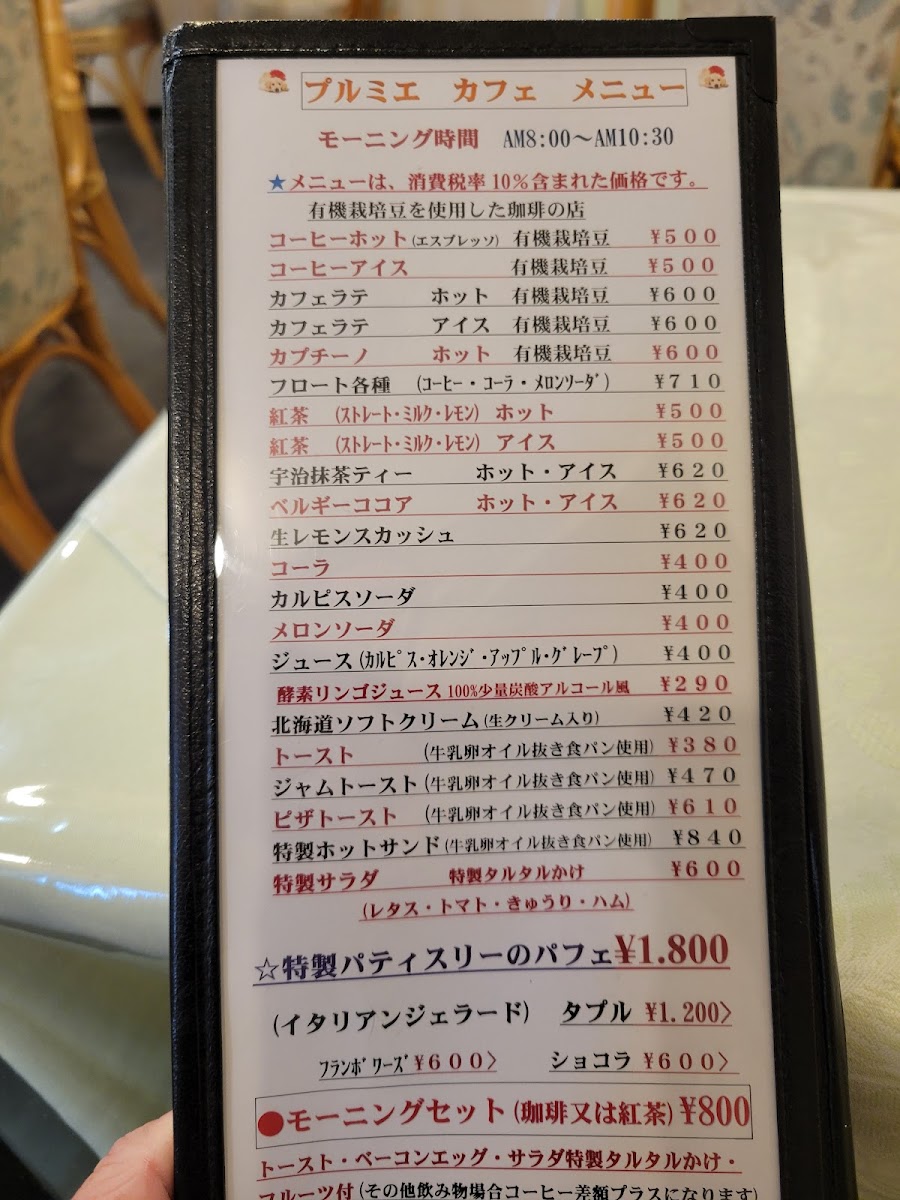 プルミエ カフェ メニュー
モーニング時間 AM8:00～AM10:30
★メニューは、消費税率10%含まれた価格です。
有機栽培豆を使用した珈琲の店
コーヒーホット(エスプレッソ) 有機栽培豆 ¥500
コーヒーアイス 有機栽培豆 ¥500
カフェラテ ホット 有機栽培豆 ¥600
カフェラテ アイス 有機栽培豆 ¥600
カプチーノ ホット 有機栽培豆 ¥600
フロート各種 (ｺｰﾋｰ・ｺｰﾗ・ﾒﾛﾝｿｰﾀﾞ) ¥710
紅茶 (ｽﾄﾚｰﾄ・ﾐﾙｸ・ﾚﾓﾝ) ホット ¥500
紅茶 (ｽﾄﾚｰﾄ・ﾐﾙｸ・ﾚﾓﾝ) アイス ¥500
宇治抹茶ティー ホット・アイス ¥620
ベルギーココア ホット・アイス ¥620
生レモンスカッシュ ¥620
コーラ ¥400
カルピスソーダ ¥400
メロンソーダ ¥400
ジュース(ｶﾙﾋﾟｽ・ｵﾚﾝｼﾞ・ｱｯﾌﾟﾙ・ｸﾞﾚｰﾌﾟ) ¥400
酵素リンゴジュース 100%少量炭酸アルコール風 ¥290
北海道ソフトクリーム(生クリーム入り) ¥420
トースト (牛乳卵オイル抜き食パン使用) ¥380
ジャムトースト(牛乳卵オイル抜き食パン使用) ¥470
ピザトースト (牛乳卵オイル抜き食パン使用) ¥610
特製ホットサンド(牛乳卵オイル抜き食パン使用) ¥840
特製サラダ 特製タルタルかけ ¥600
(レタス・トマト・きゅうり・ハム)
☆特製パティスリーのパフェ¥1.800
(イタリアンジェラード) タプル ¥1.200〉
ﾌﾗﾝﾎﾞﾜｰｽﾞ¥600〉 ショコラ ¥600〉
●モーニングセット(珈琲又は紅茶)¥800
トースト・ベーコンエッグ・サラダ特製タルタルかけ・
フルーツ付(その他飲み物場合コーヒー差額プラスになります)